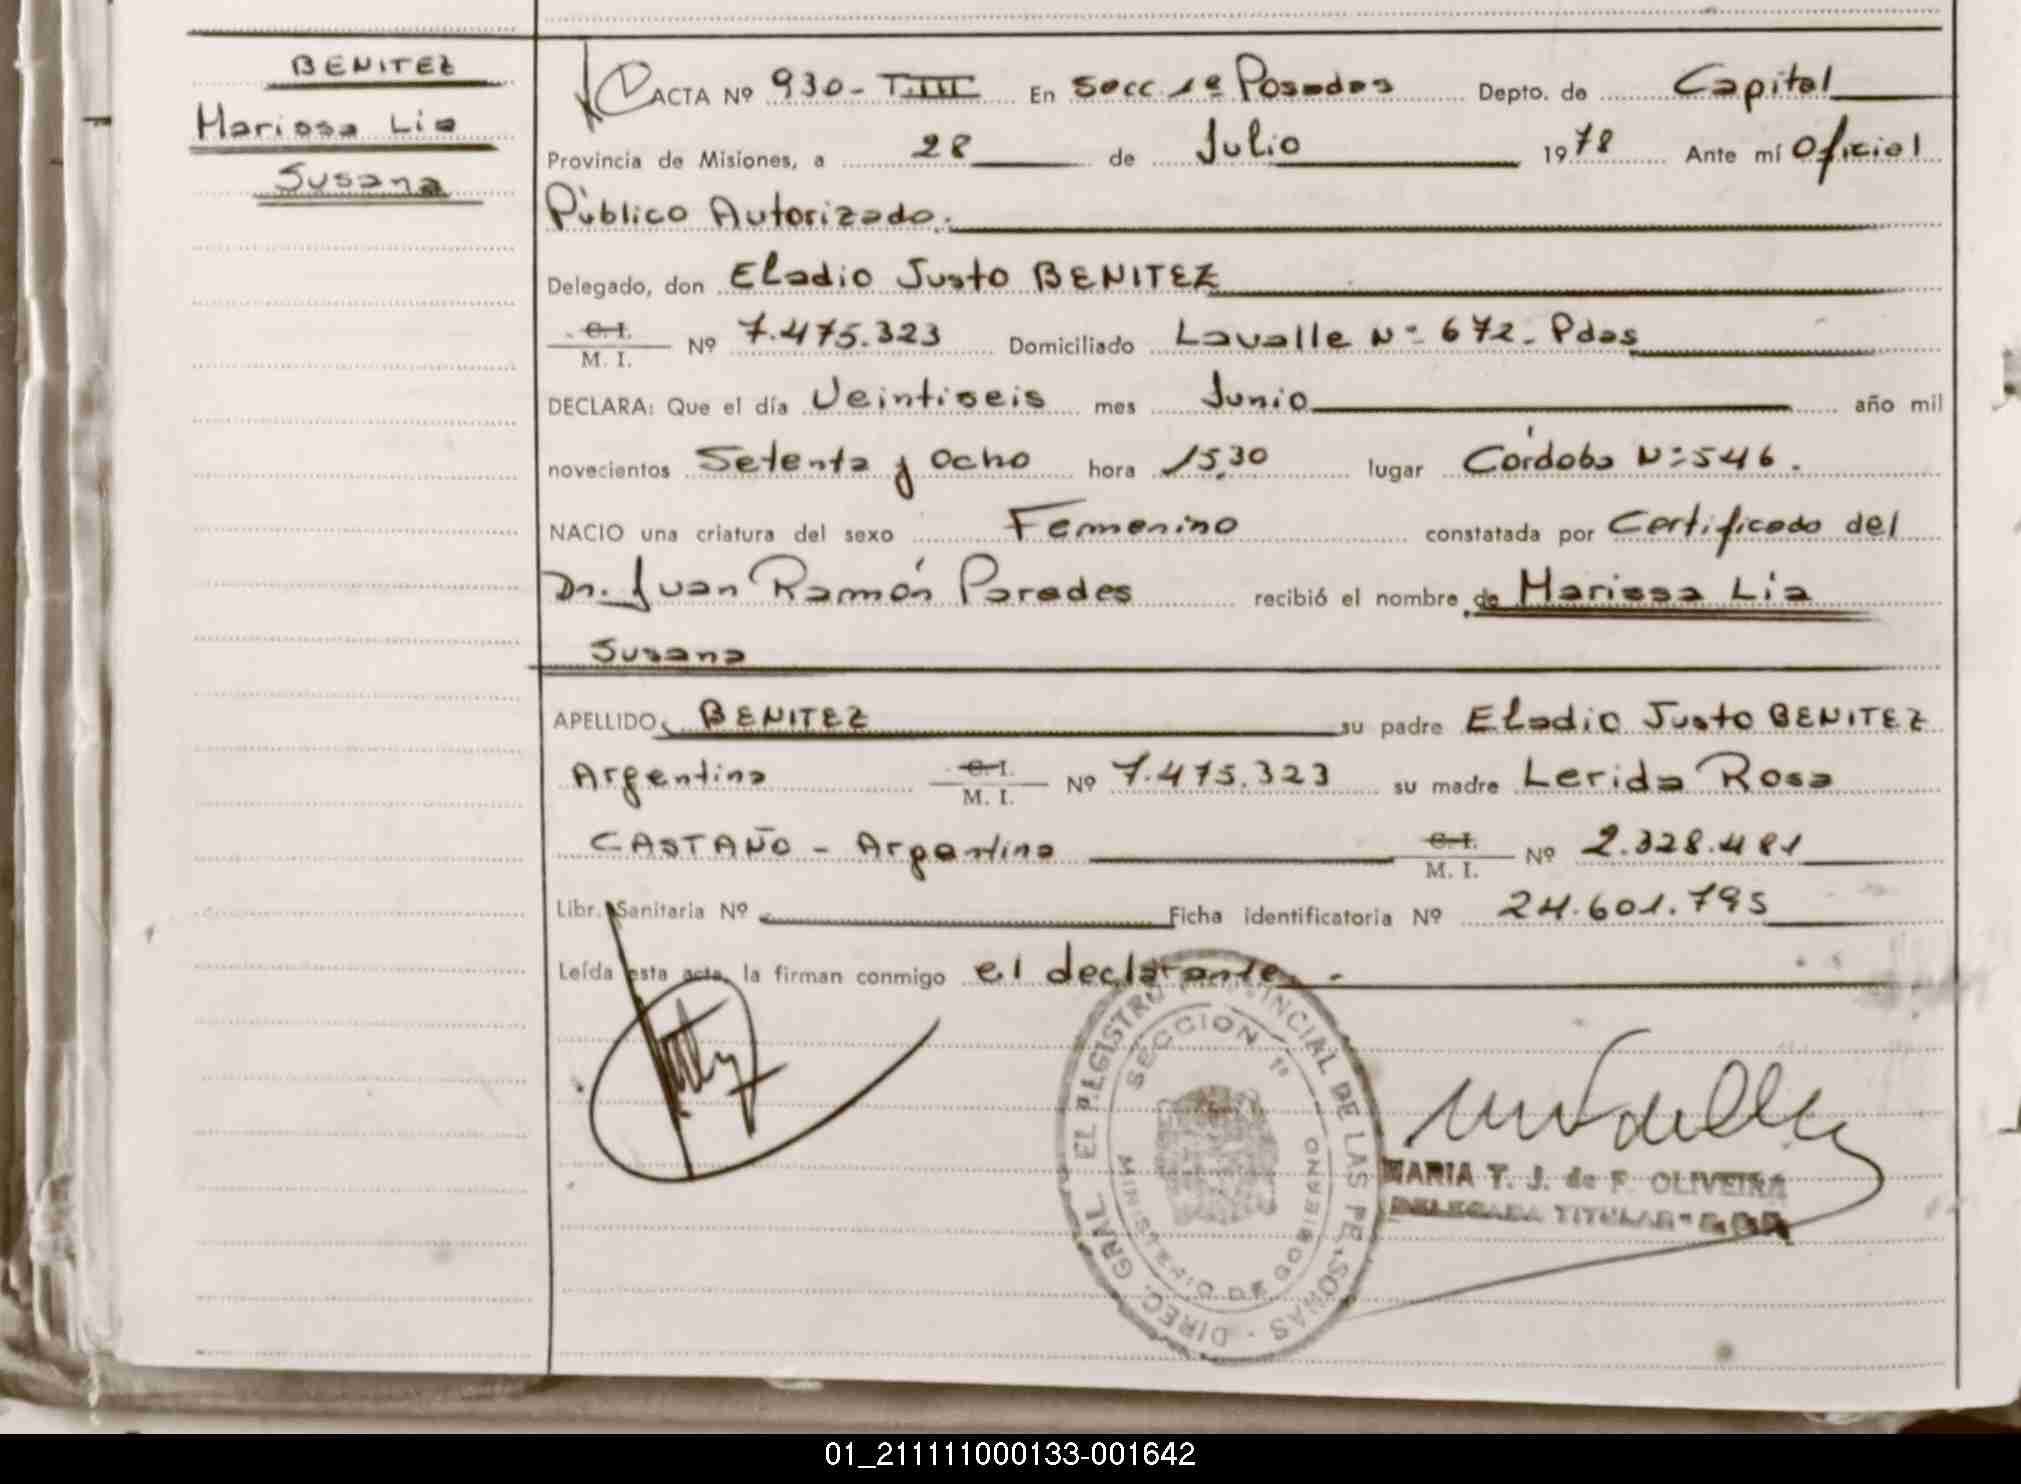 BENITEZ
Marissa Lia
Susana
ACTA Nº 930- T.III En Secc 1ª Posadas Depto. de Capital
Provincia de Misiones, a 28 de Julio 1978 Ante mí Oficial
Público Autorizado.
Delegado, don Eladio Justo BENITEZ
C.I.
M. I. Nº 7.475.323 Domiciliado Lavalle Nº 672- Pdas
DECLARA: Que el día Veintiseis mes Junio año mil
novecientos Setenta y Ocho hora 15,30 lugar Córdoba Nº 546.
NACIO una criatura del sexo Femenino constatada por Certificado del
Dr. Juan Ramón Paredes recibió el nombre de Marissa Lia
Susana
APELLIDO BENITEZ su padre Eladio Justo BENITEZ
Argentino C.I.
M. I. Nº 7.475.323 su madre Lerida Rosa
CASTAÑO - Argentina C.I.
M. I. Nº 2.328.481
Libr. Sanitaria Nº Ficha identificatoria Nº 24.601.795
Leída esta acta, la firman conmigo el declarante -
DIREC. GRAL. EL REGISTRO PROVINCIAL DE LAS PERSONAS
SECCION 1º
MINISTERIO DE GOBIERNO
MARIA T. J. de F. OLIVEIRA
DELEGADA TITULAR
01_211111000133-001642